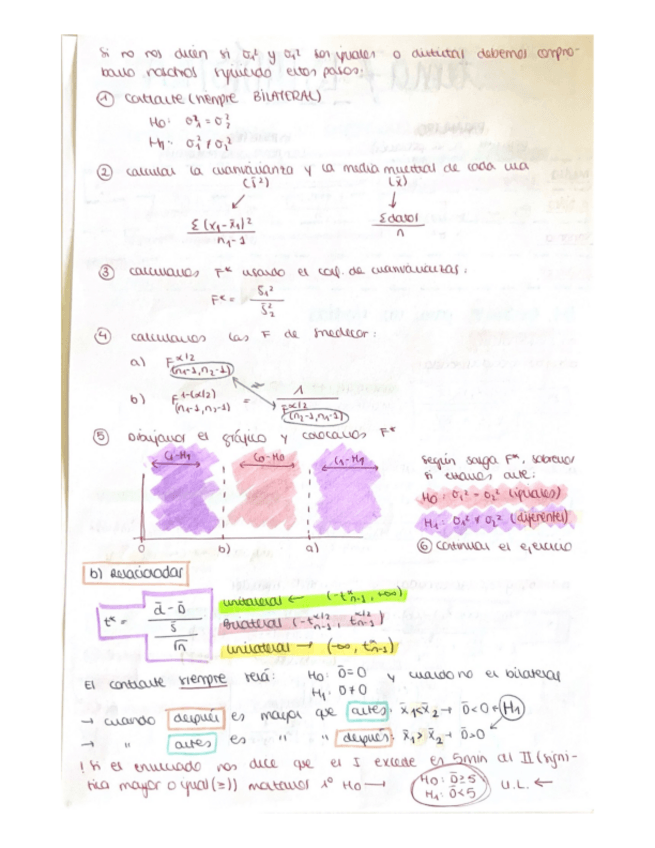 Si no nos dicen si σ₁² y σ₂² son iguales o distintas debemos compro-
barlo nosotros siguiendo estos pasos:
① contraste (siempre BILATERAL)
H0: σ₁² = σ₂²
H1: σ₁² ≠ σ₂²
② calcular la cuasivarianza y la media muestral de cada una
(ŝ²) (x̄)
Σ(x₁-x̄₁)² Σdatos
n₁-1 n
③ calculamos F* usando el de cuasivarianzas:
F* = ŝ₁² / ŝ₂²
④ calculamos las F de Snedecor:
a) F^α/2 (n₁-1, n₂-1)
b) F^1-(α/2) (n₁-1, n₂-1) = 1 / F^α/2 (n₂-1, n₁-1)
⑤ Dibujamos el gráfico y colocamos F*
C₁-H1 C0-H0 C₁-H1
0 b) a)
Según salga F*, sabremos
si estamos ante:
H0: σ₁² = σ₂² (iguales)
H1: σ₁² ≠ σ₂² (diferentes)
⑥ continuar el ejercicio
b) Relacionadas
t* = d̄ - D̄ / ŝ / √n
unilateral ← (-t^α n-1, +∞)
Bilateral (-t^α/2 n-1, t^α/2 n-1)
unilateral → (-∞, t^α n-1)
El contraste siempre será: H0: D̄=0 y cuando no es bilateral
H1: D̄≠0
→ cuando después es mayor que antes: x̄₁<x̄₂ → D̄<0 ← H1
→ " antes es " " después: x̄₁>x̄₂ → D̄>0
! Si el enunciado nos dice que el I excede es 5min al II (signi-
fica mayor o igual (≥)) H0 → H0: D̄≥5 U.L. ←
H1: D̄<5